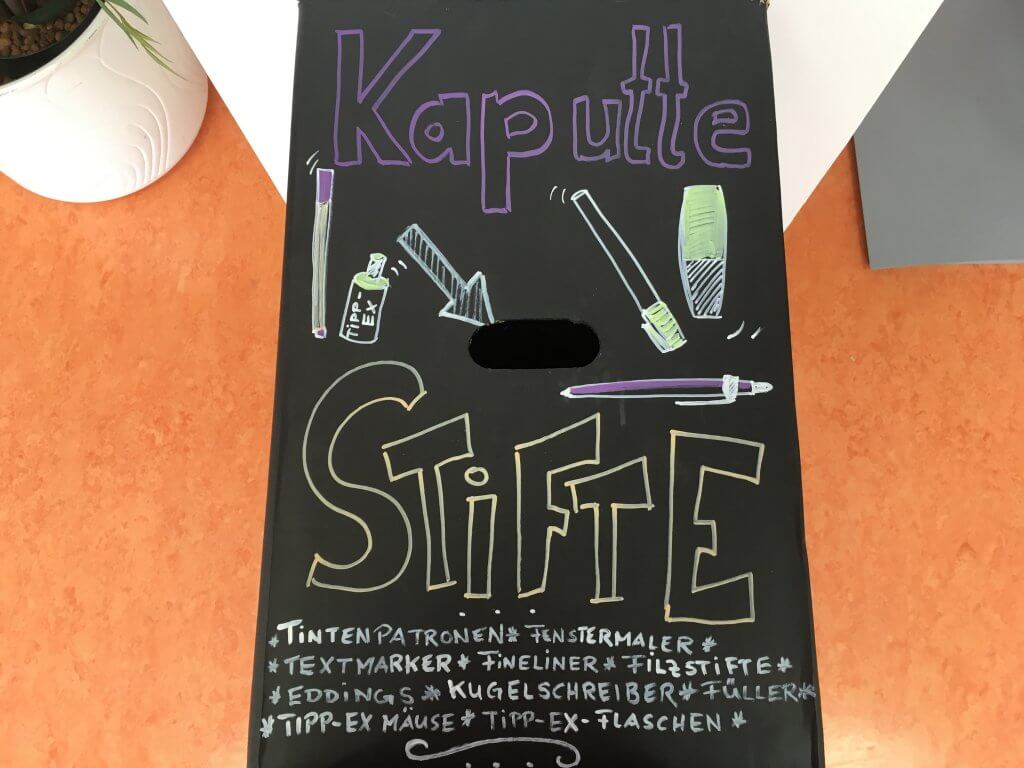 Kaputte
TIPP-
EX
STiFTE
*TINTENPATRONEN* FENSTERMALER *
*TEXTMARKER* FINELINER * FILZSTIFTE *
*EDDINGS* KUGELSCHREIBER * FÜLLER *
*TIPP-EX MÄUSE* TIPP-EX-FLASCHEN *